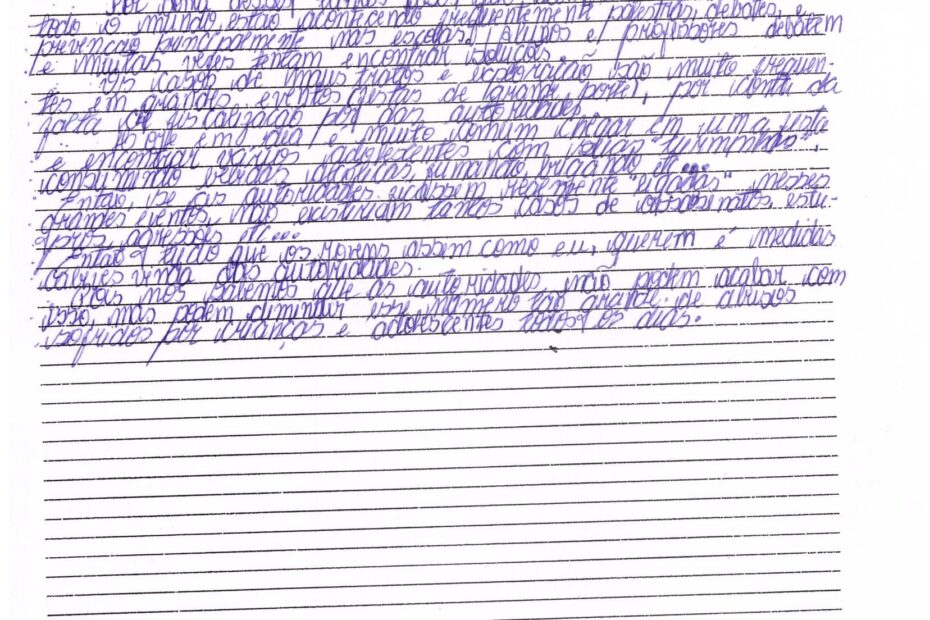 Por conta desses
todo o mundo estão acontecendo frequentemente palestras, debates, e
prevenção principalmente nas escolas. Alunos e professores debatem
e muitas vezes tentam encontrar soluções.
Os casos de maus tratos e exploração são muito frequen-
tes em grandes eventos festas de grande porte, por conta da
falta de fiscalização por das autoridades.
Hoje em dia é muito comum chegar em uma festa
e encontrar vários adolescentes com suas "turminhas",
consumindo bebidas alcólicas, fumando, brigando, etc...
Então, se as autoridades ficassem realmente "ligadas" nesses
grandes eventos, não existiriam tantos casos de assassinatos, estu-
pros, agressões etc...
Então tudo que os jovens assim como eu, querem é medidas
vinda das autoridades.
Pois nós sabemos que as autoridades não podem acabar com
isso, mas podem diminuir esse número tão grande de abusos
sofridos por crianças e adolescentes todos os dias.